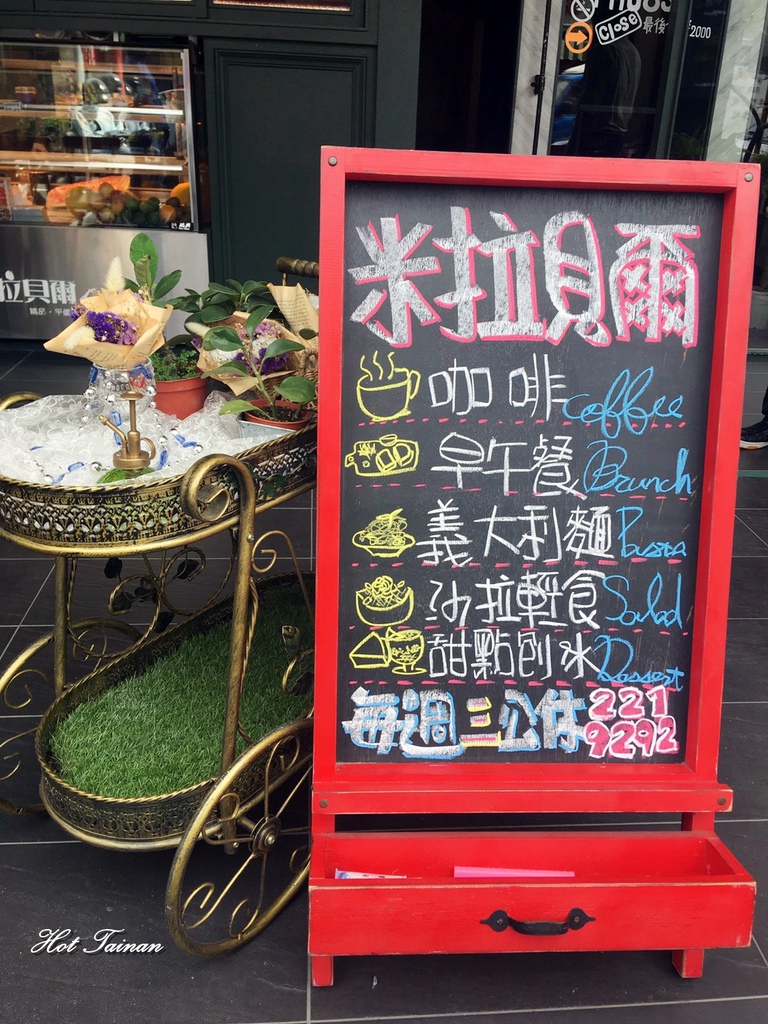 Close
最後
2000
拉貝爾
精品
米拉貝爾
咖啡 coffee
早午餐 Brunch
義大利麵 Passa
沙拉輕食 Salad
甜點刨冰 Dassert
每週三公休 221
9292
Hot Tainan